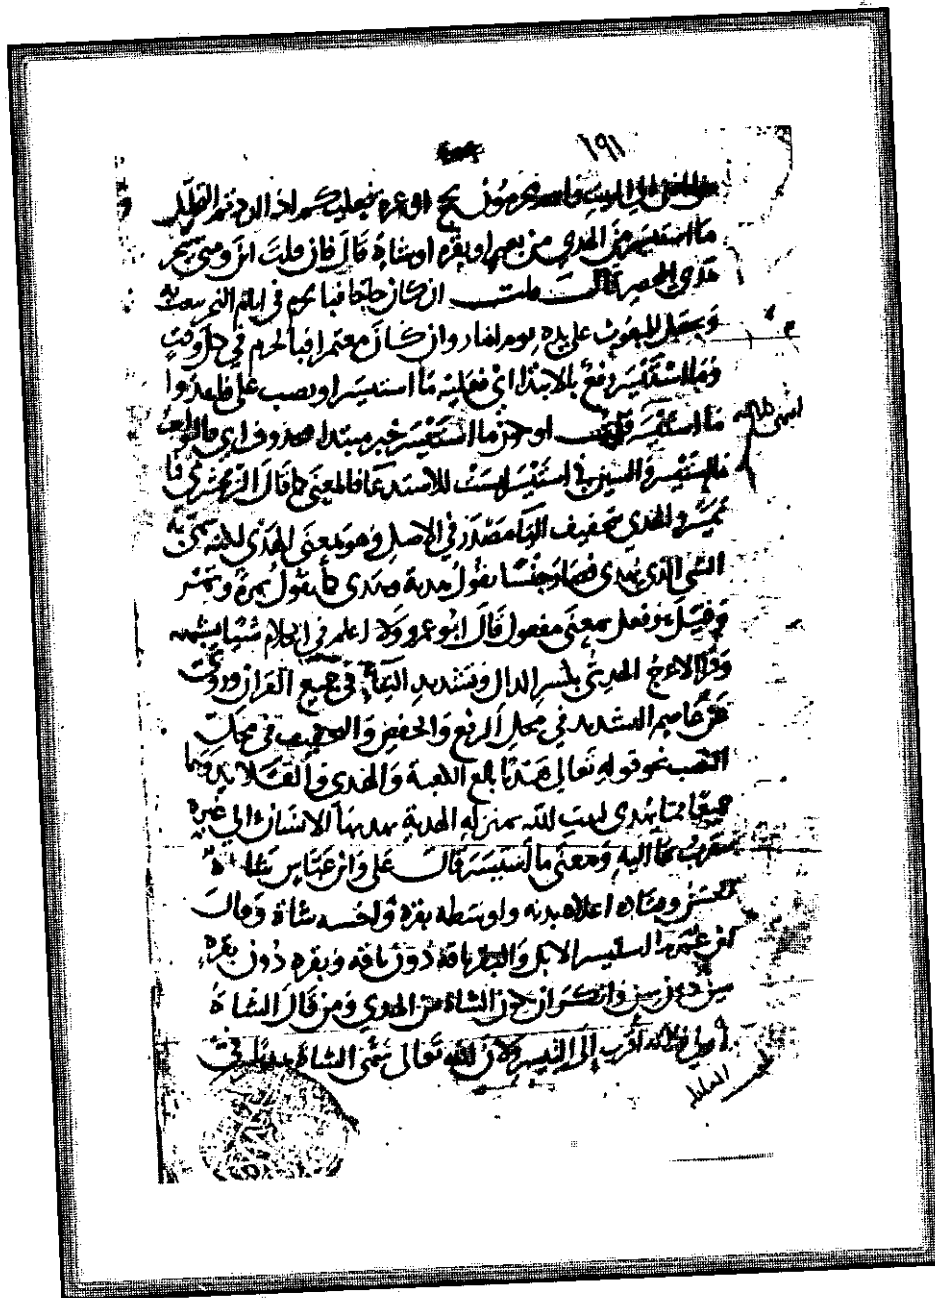 ١٩١
محرمون بحج او عمره فعليكم اذا اردتم التحلل
ما استيسر من الهدي من بعير او بقره او شاة قال فان قلت اين ومتى ينحر
هدي المحصر قلت ان كان حاجا فبالحرم في ايام النحر يبعث به
ويجعل للمبعوث على يده يوم امار وان كان معتمرا فبالحرم في كل وقت
وما استيسر رفع بالابتدا اي فعليه ما استيسر او نصب على فاهدوا
ما استيسر قلت او خبر مبتدا محذوف اي فالواجب
ما استيسر والسين في استيسر ليست للاستدعا فالمعنى كما قال الزمخشري ما
تيسر والهدي تخفيف اليا مصدر في الاصل وهو بمعنى المهدي لانه سمي به
الشي الذي يهدى فصار جنسا يقول هدية وهدي كما يقول تمرة وتمر
وقيل هو فعل بمعنى مفعول قال ابو عمرو ولا اعلم في الكلام شيا يشبهه
وقرا الاعرج الهدي بكسر الدال وتشديد الياء في جميع القران وروي
عن عاصم التشديد في محل الرفع والخفض والتخفيف في محل
النصب نحو قوله تعالى هديا بالغ الكعبة والهدي والقلائد وهما
جميعا مما يهدى لبيت الله بمنزلة الهدية يهديها الانسان الى غيره
متقربا بها اليه ومعنى ما استيسر قال على وابن عباس شاة
الحسن وقتاده اعلاه بدنه واوسطه بقره واخسه شاة وقال
ابن عمر ما استيسر الابل والبقر ناقة دون ناقه وبقره دون بقره
سن دون سن وانكر ان تكون الشاة من الهدي ومن قال الشاة
لانه اقرب إلى التيسر ولان الله تعالى سمى الشاة هديا في